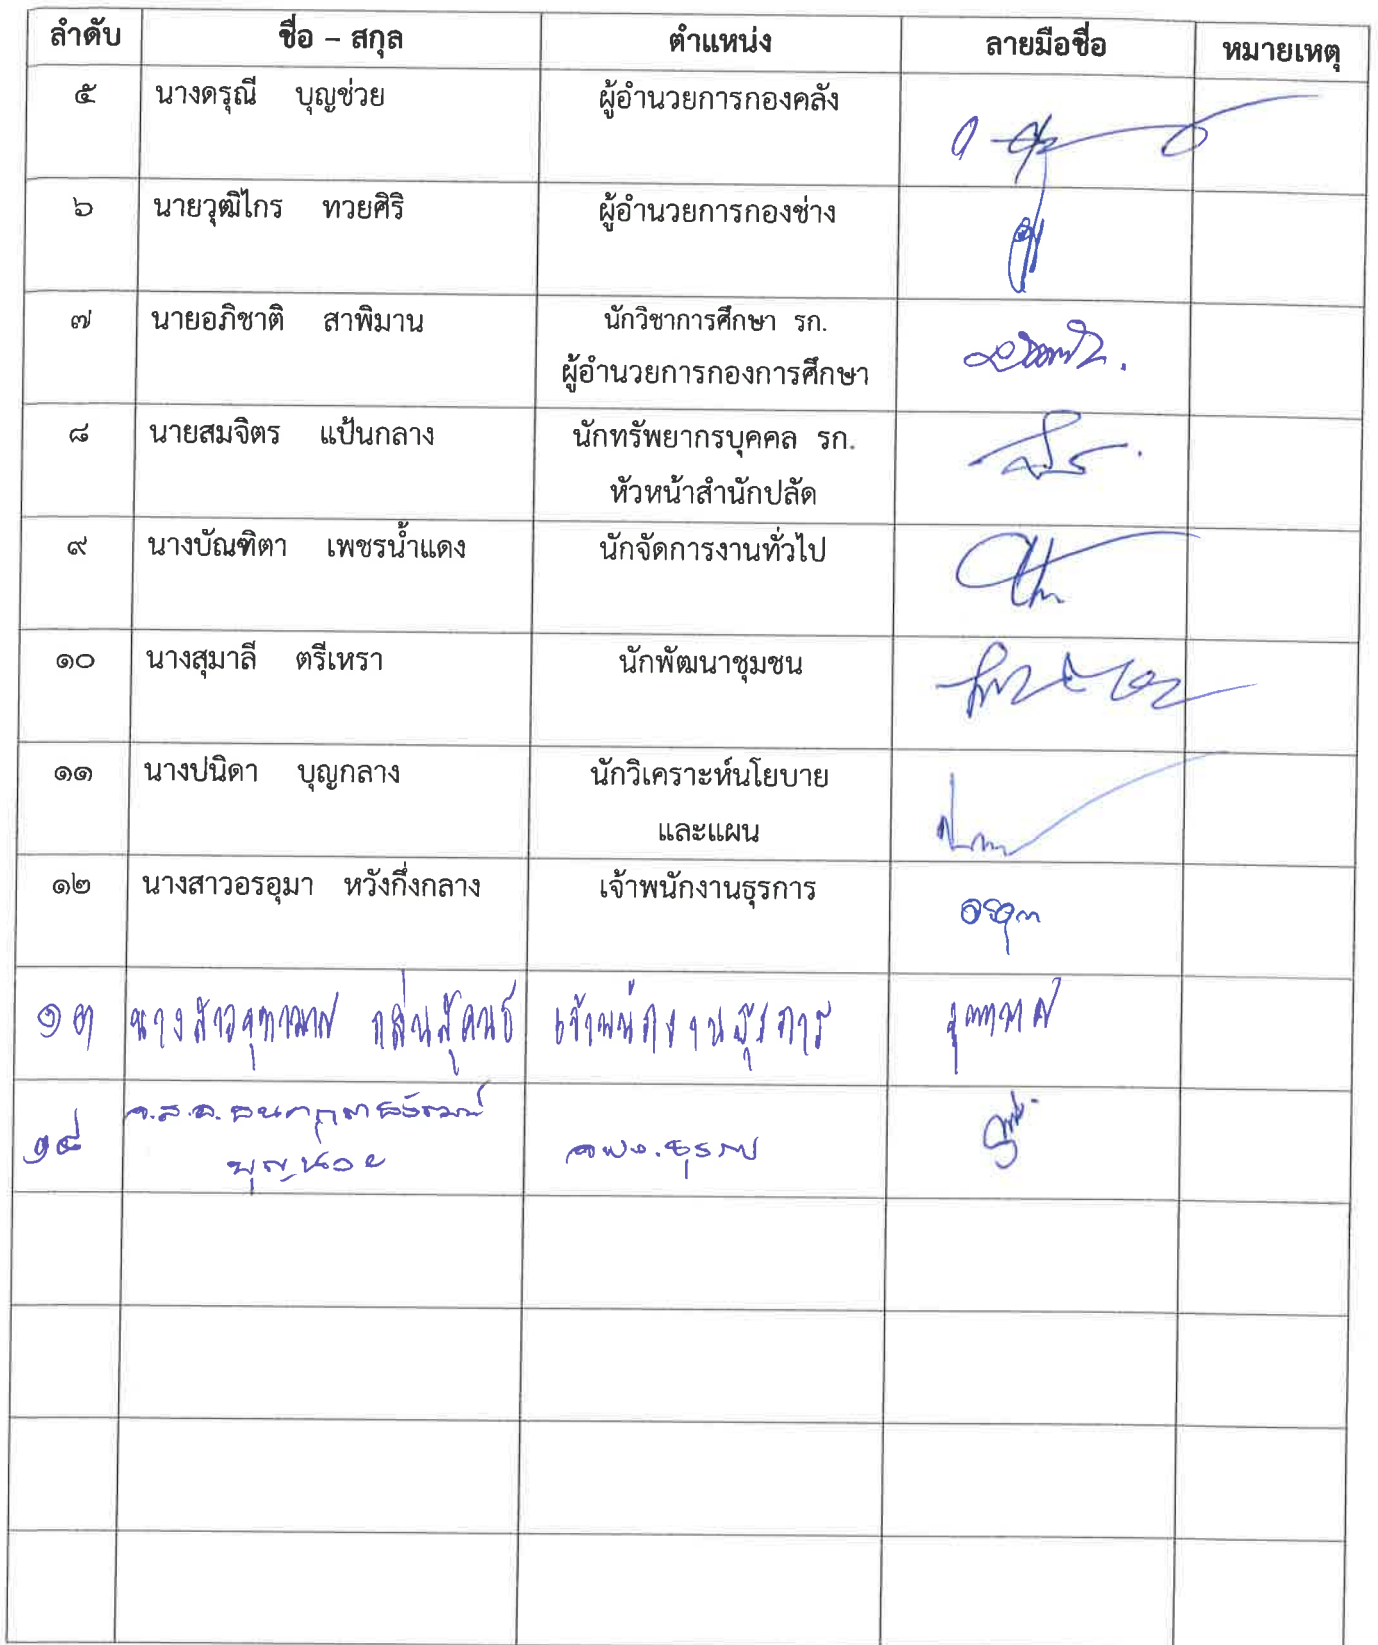 ลำดับ ชื่อ – สกุล ตำแหน่ง ลายมือชื่อ หมายเหตุ
๕ นางดรุณี บุญช่วย ผู้อำนวยการกองคลัง
๖ นายวุฒิไกร ทวยศิริ ผู้อำนวยการกองช่าง
๗ นายอภิชาติ สาพิมาน นักวิชาการศึกษา รก.
ผู้อำนวยการกองการศึกษา
๘ นายสมจิตร แป้นกลาง นักทรัพยากรบุคคล รก.
หัวหน้าสำนักปลัด
๙ นางบัณฑิตา เพชรน้ำแดง นักจัดการงานทั่วไป
๑๐ นางสุมาลี ตรีเหรา นักพัฒนาชุมชน
๑๑ นางปนิดา บุญกลาง นักวิเคราะห์นโยบาย
และแผน
๑๒ นางสาวอรอุมา หวังกึ่งกลาง เจ้าพนักงานธุรการ อรอุมา
๑๓ นางสาวจุฑามาศ กลิ่นสุคนธ์ เจ้าพนักงานธุรการ จุฑามาศ
๑๔ จ.ส.อ.
บุญน้อย จพง.ธุรการ